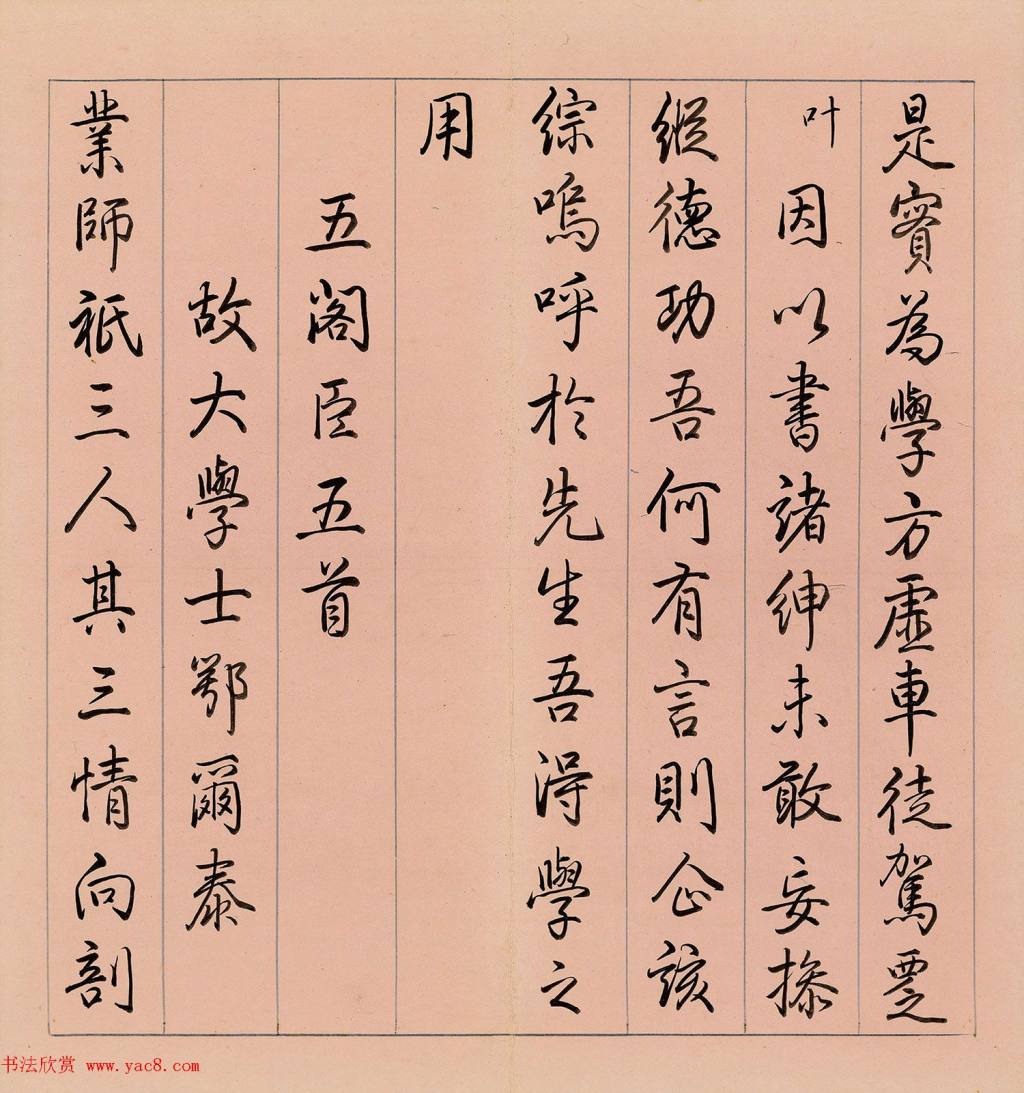 是實為學方虛車徒駕覂
叶 因以書諸紳未敢妄操
縱德功吾何有言則企該
綜嗚呼於先生吾得學之
用
五閣臣五首
故大學士鄂爾泰
業師祇三人其三情向剖
书法欣赏 www.yac8.com